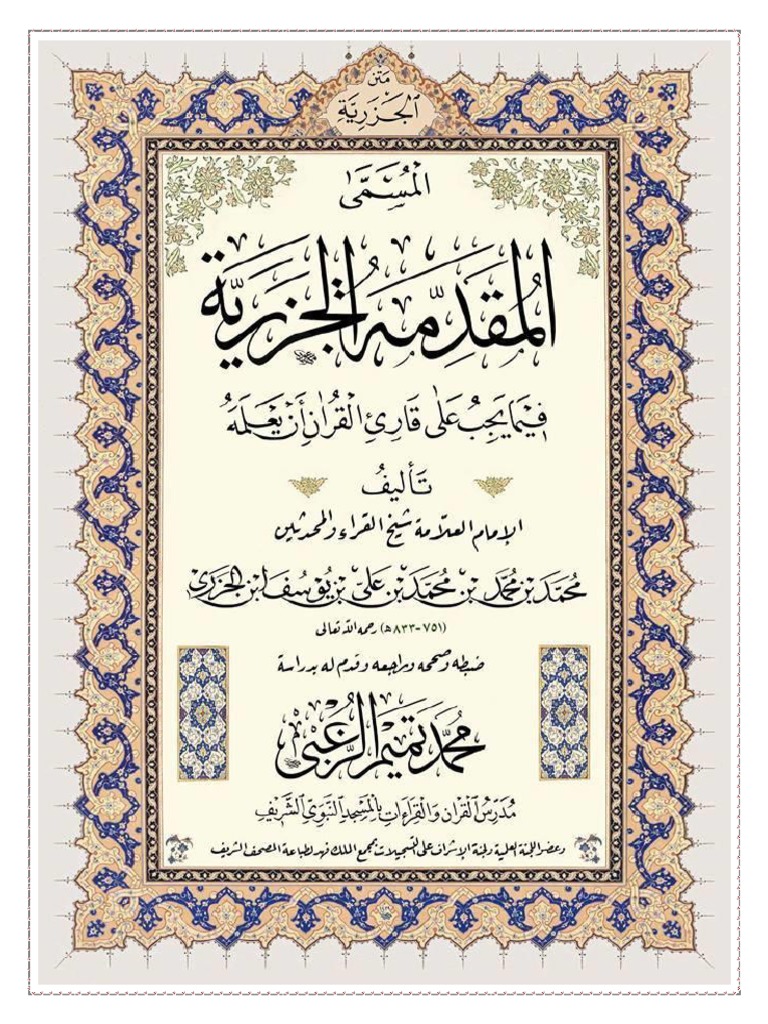 مَتْنُ
الْجَزَرِيَّةِ
الْمُسَمَّى
الْمُقَدِّمَةُ الْجَزَرِيَّة
فِيمَا يَجِبُ عَلَى قَارِئِ الْقُرْآنِ أَنْ يَعْلَمَهُ
تَأْلِيفُ
الإمام العلّامة شيخ القراء والمحدثين
مُحَمَّد بْن مُحَمَّد بْن مُحَمَّد بْن عَلِيّ بْن يُوسُف ابْن الْجَزَرِي
(٧٥١-٨٣٣هـ) رحمه الله تعالى
ضبطه وصححه وراجعه وقدم له بدراسة
مُحَمَّد تَمِيم الزُّعْبِي
مُدَرِّسُ الْقُرْآنِ وَالْقِرَاءَاتِ بِالْمَسْجِدِ النَّبَوِيِّ الشَّرِيفِ
وعضو اللجنة العلمية ولجنة الإشراف على التسجيلات بمجمع الملك فهد لطباعة المصحف الشريف